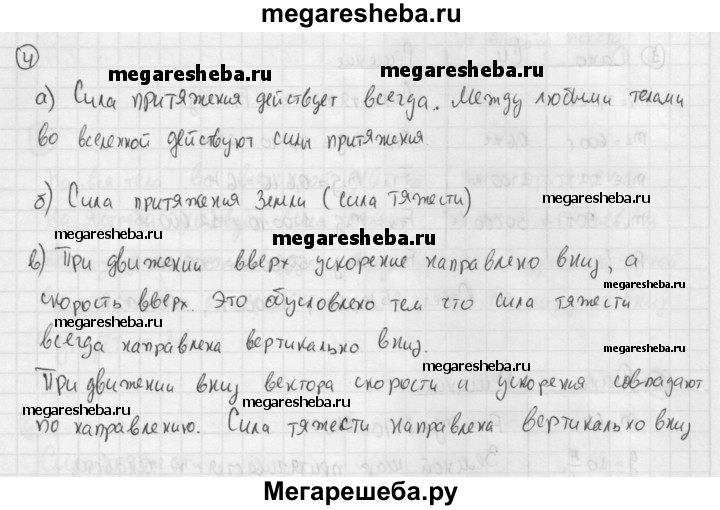 megaresheba.ru
4
megaresheba.ru megaresheba.ru
а) Сила притяжения действует всегда. Между любыми телами
во вселенной действуют силы притяжения.
megaresheba.ru
б) Сила притяжения Земли (сила тяжести)
megaresheba.ru megaresheba.ru
в) При движении вверх ускорение направлено вниз, а
megaresheba.ru
скорость вверх. Это обусловлено тем что сила тяжести
megaresheba.ru
всегда направлена вертикально вниз.
megaresheba.ru
megaresheba.ru
При движении вниз вектора скорости и ускорения совпадают
megaresheba.ru megaresheba.ru megaresheba.ru
по направлению. Сила тяжести направлена вертикально вниз
Мегарешеба.ру